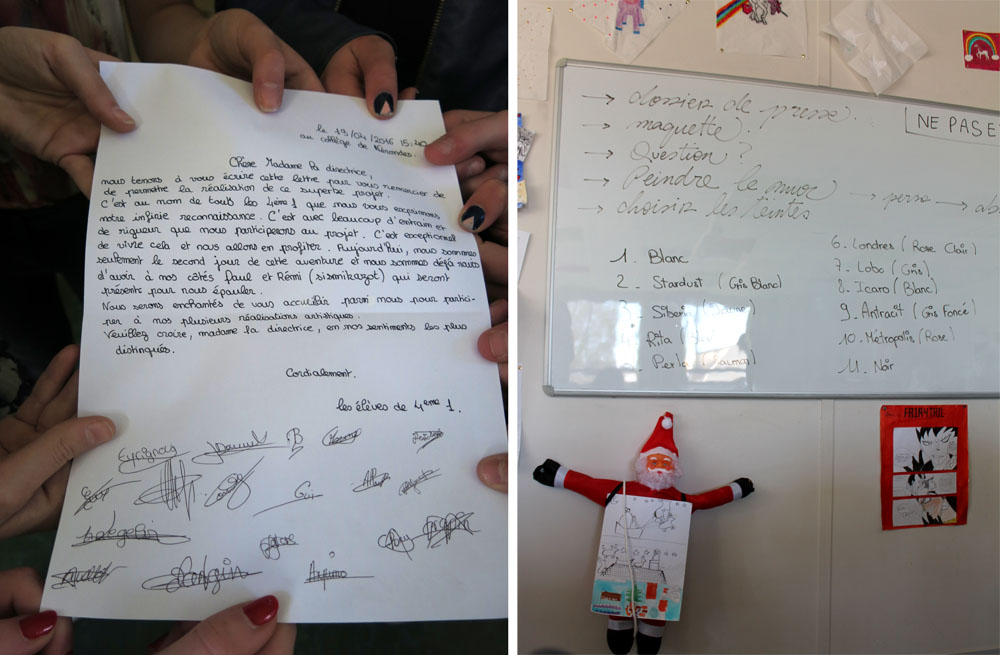 le 19/04/2016 15:40
au collège de
Chère Madame la directrice,
nous tenons à vous écrire cette lettre pour vous remercier de
de permettre la réalisation de ce superbe projet.
C'est au nom de touts les 4ème 1 que nous vous exprimons
notre infinie reconnaissance. C'est avec beaucoup d'entrain et
de rigueur que nous participerons au projet. C'est exceptionnel
de vivre cela et nous allons en profiter. Aujourd'hui, nous sommes
seulement le second jour de cette aventure et nous sommes déjà ravis
d'avoir à nos côtés Paul et Rémi (sismikazot) qui seront
présents pour nous épauler.
Nous serons enchantés de vous accueillir parmi nous pour partici-
per à nos plusieurs réalisations artistiques.
Veuillez croire, madame la directrice, en nos sentiments les plus
distingués.
Cordialement.
les élèves de 4ème 1.
→ dossier de presse.
→ maquette
→ Question ?
→ Peindre le mur → perse → abs
→ choisir les teintes
NE PAS E
1. Blanc
2. Stardust (Gris Blanc)
3. Siberia
4. Rita
Perla
6. Londres (Rose Clair)
7. Lobo (Gris)
8. Icaro (Blanc)
9. Antracit (Gris Foncé)
10. Métropolis (Rose)
11. Noir
FAIRY TAIL